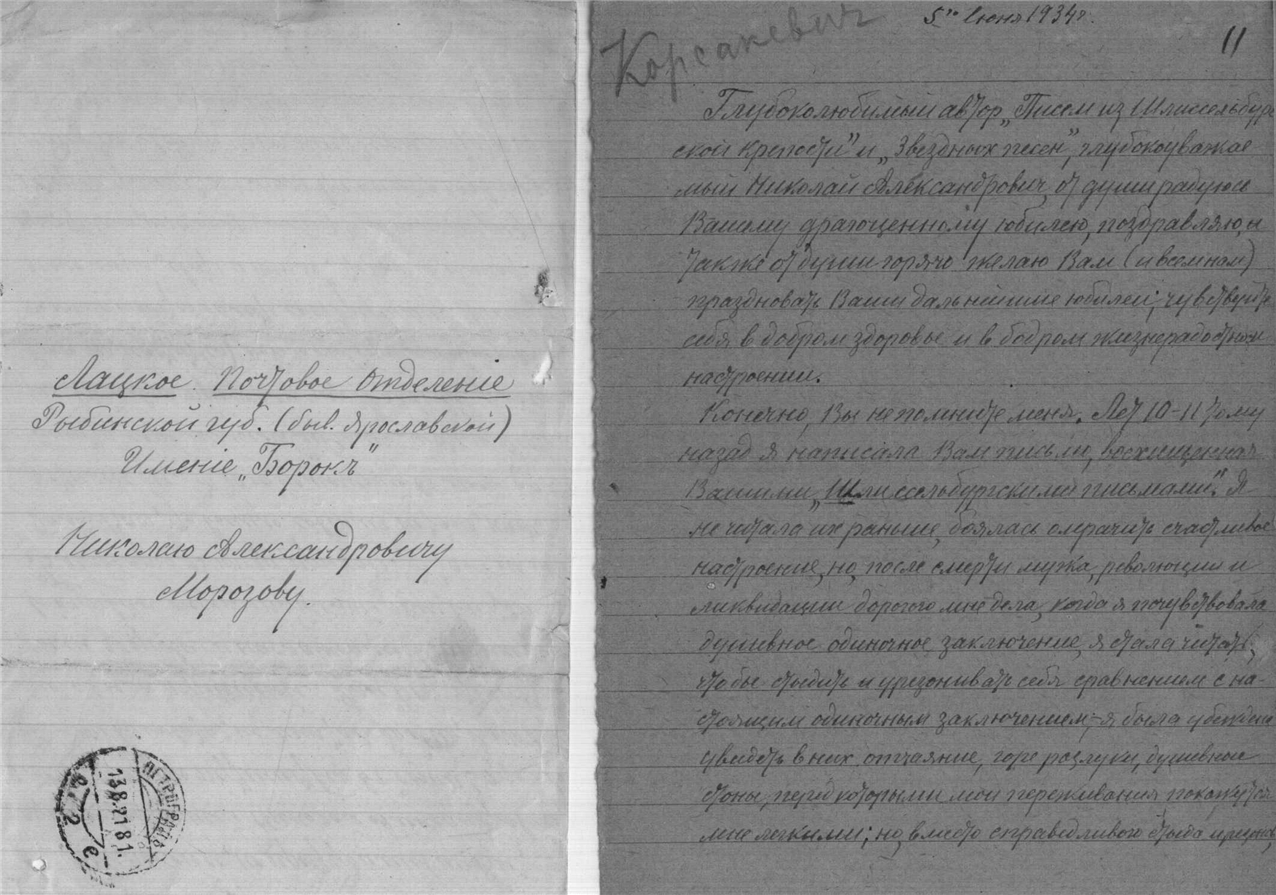 Лацкое Почтовое Отделеніе
Рыбинской губ. (быв. Ярославской)
Именіе „Борокъ"
Николаю Александровичу
Морозову.
ПЕТРОГРАДЪ
13.8.21
Корсакевич
5го Июня 1934г.
11
Глубоколюбимый автор „Писем из Шлиссельбург
ской крепости" и „Звездных песен", глубокоуважае
мый Николай Александрович, от души радуюсь
Вашему драгоценному юбилею, поздравляю, и
также от души горячо желаю Вам (и всем нам)
праздновать Ваши дальнейшие юбилеи; чувствуйте
себя в добром здоровье и в бодром жизнерадостном
настроении.
Конечно, Вы не помните меня. Лет 10-11 тому
назад я написала Вам письмо, восхищенная
Вашими „Шлиссельбургскими письмами". Я
не читала их раньше, боялась омрачить счастливое
настроение, но, после смерти мужа, революции и
ликвидации дорогого мне дела, когда я почувствовала
душевное одиночное заключение, я стала читать,
чтобы стыдить и урезонивать себя сравнением с на-
стоящим одиночным заключением, я была убеждена
увидеть в них отчаяние, горе разлуки, душевные
стоны, перед которыми мои переживания покажутся
мне легкими; но, вместо справедливого стыда